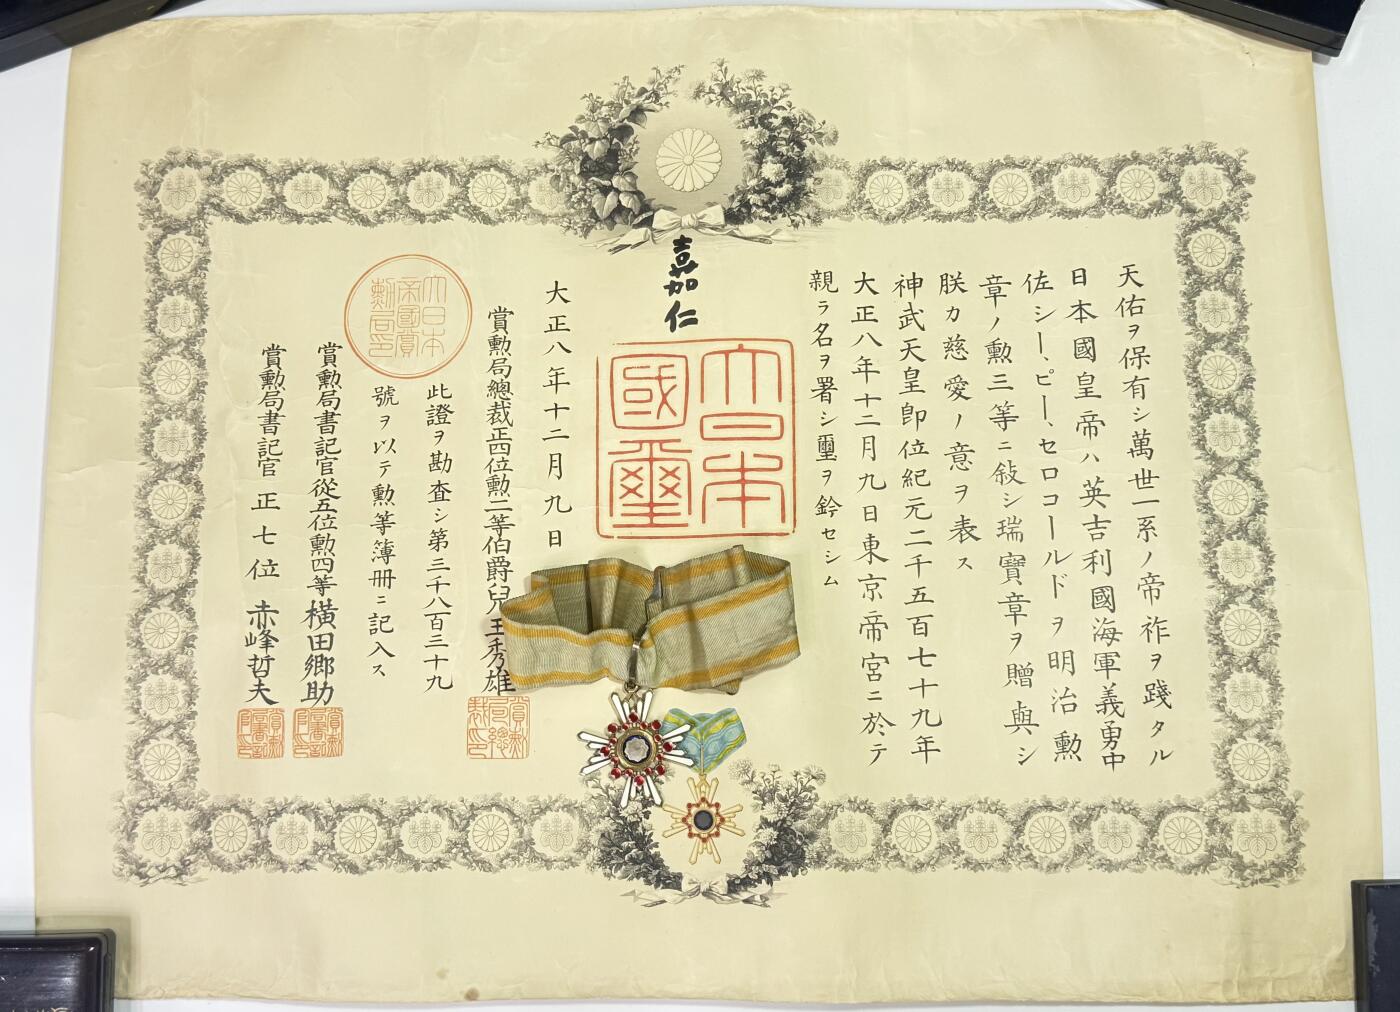 天佑ヲ保有シ萬世一系ノ帝祚ヲ踐タル
日本國皇帝ハ英吉利國海軍義勇中
佐シー、ピー、セロコールドヲ明治勲
章ノ勲三等ニ敍シ瑞寶章ヲ贈與シ
朕カ慈愛ノ意ヲ表ス
神武天皇即位紀元二千五百七十九年
大正八年十二月九日東京帝宮ニ於テ
親ラ名ヲ署シ璽ヲ鈐セシム
嘉仁
大日本
國璽
大正八年十二月九日
賞勲局總裁正四位勲二等伯爵兒玉秀雄
賞勲局總裁印
此證ヲ勘査シ第三千八百三十九
號ヲ以テ勲等簿冊ニ記入ス
大日本帝國賞勲局印
賞勲局書記官從五位勲四等横田郷助
賞勲局書記官正七位赤峰哲夫